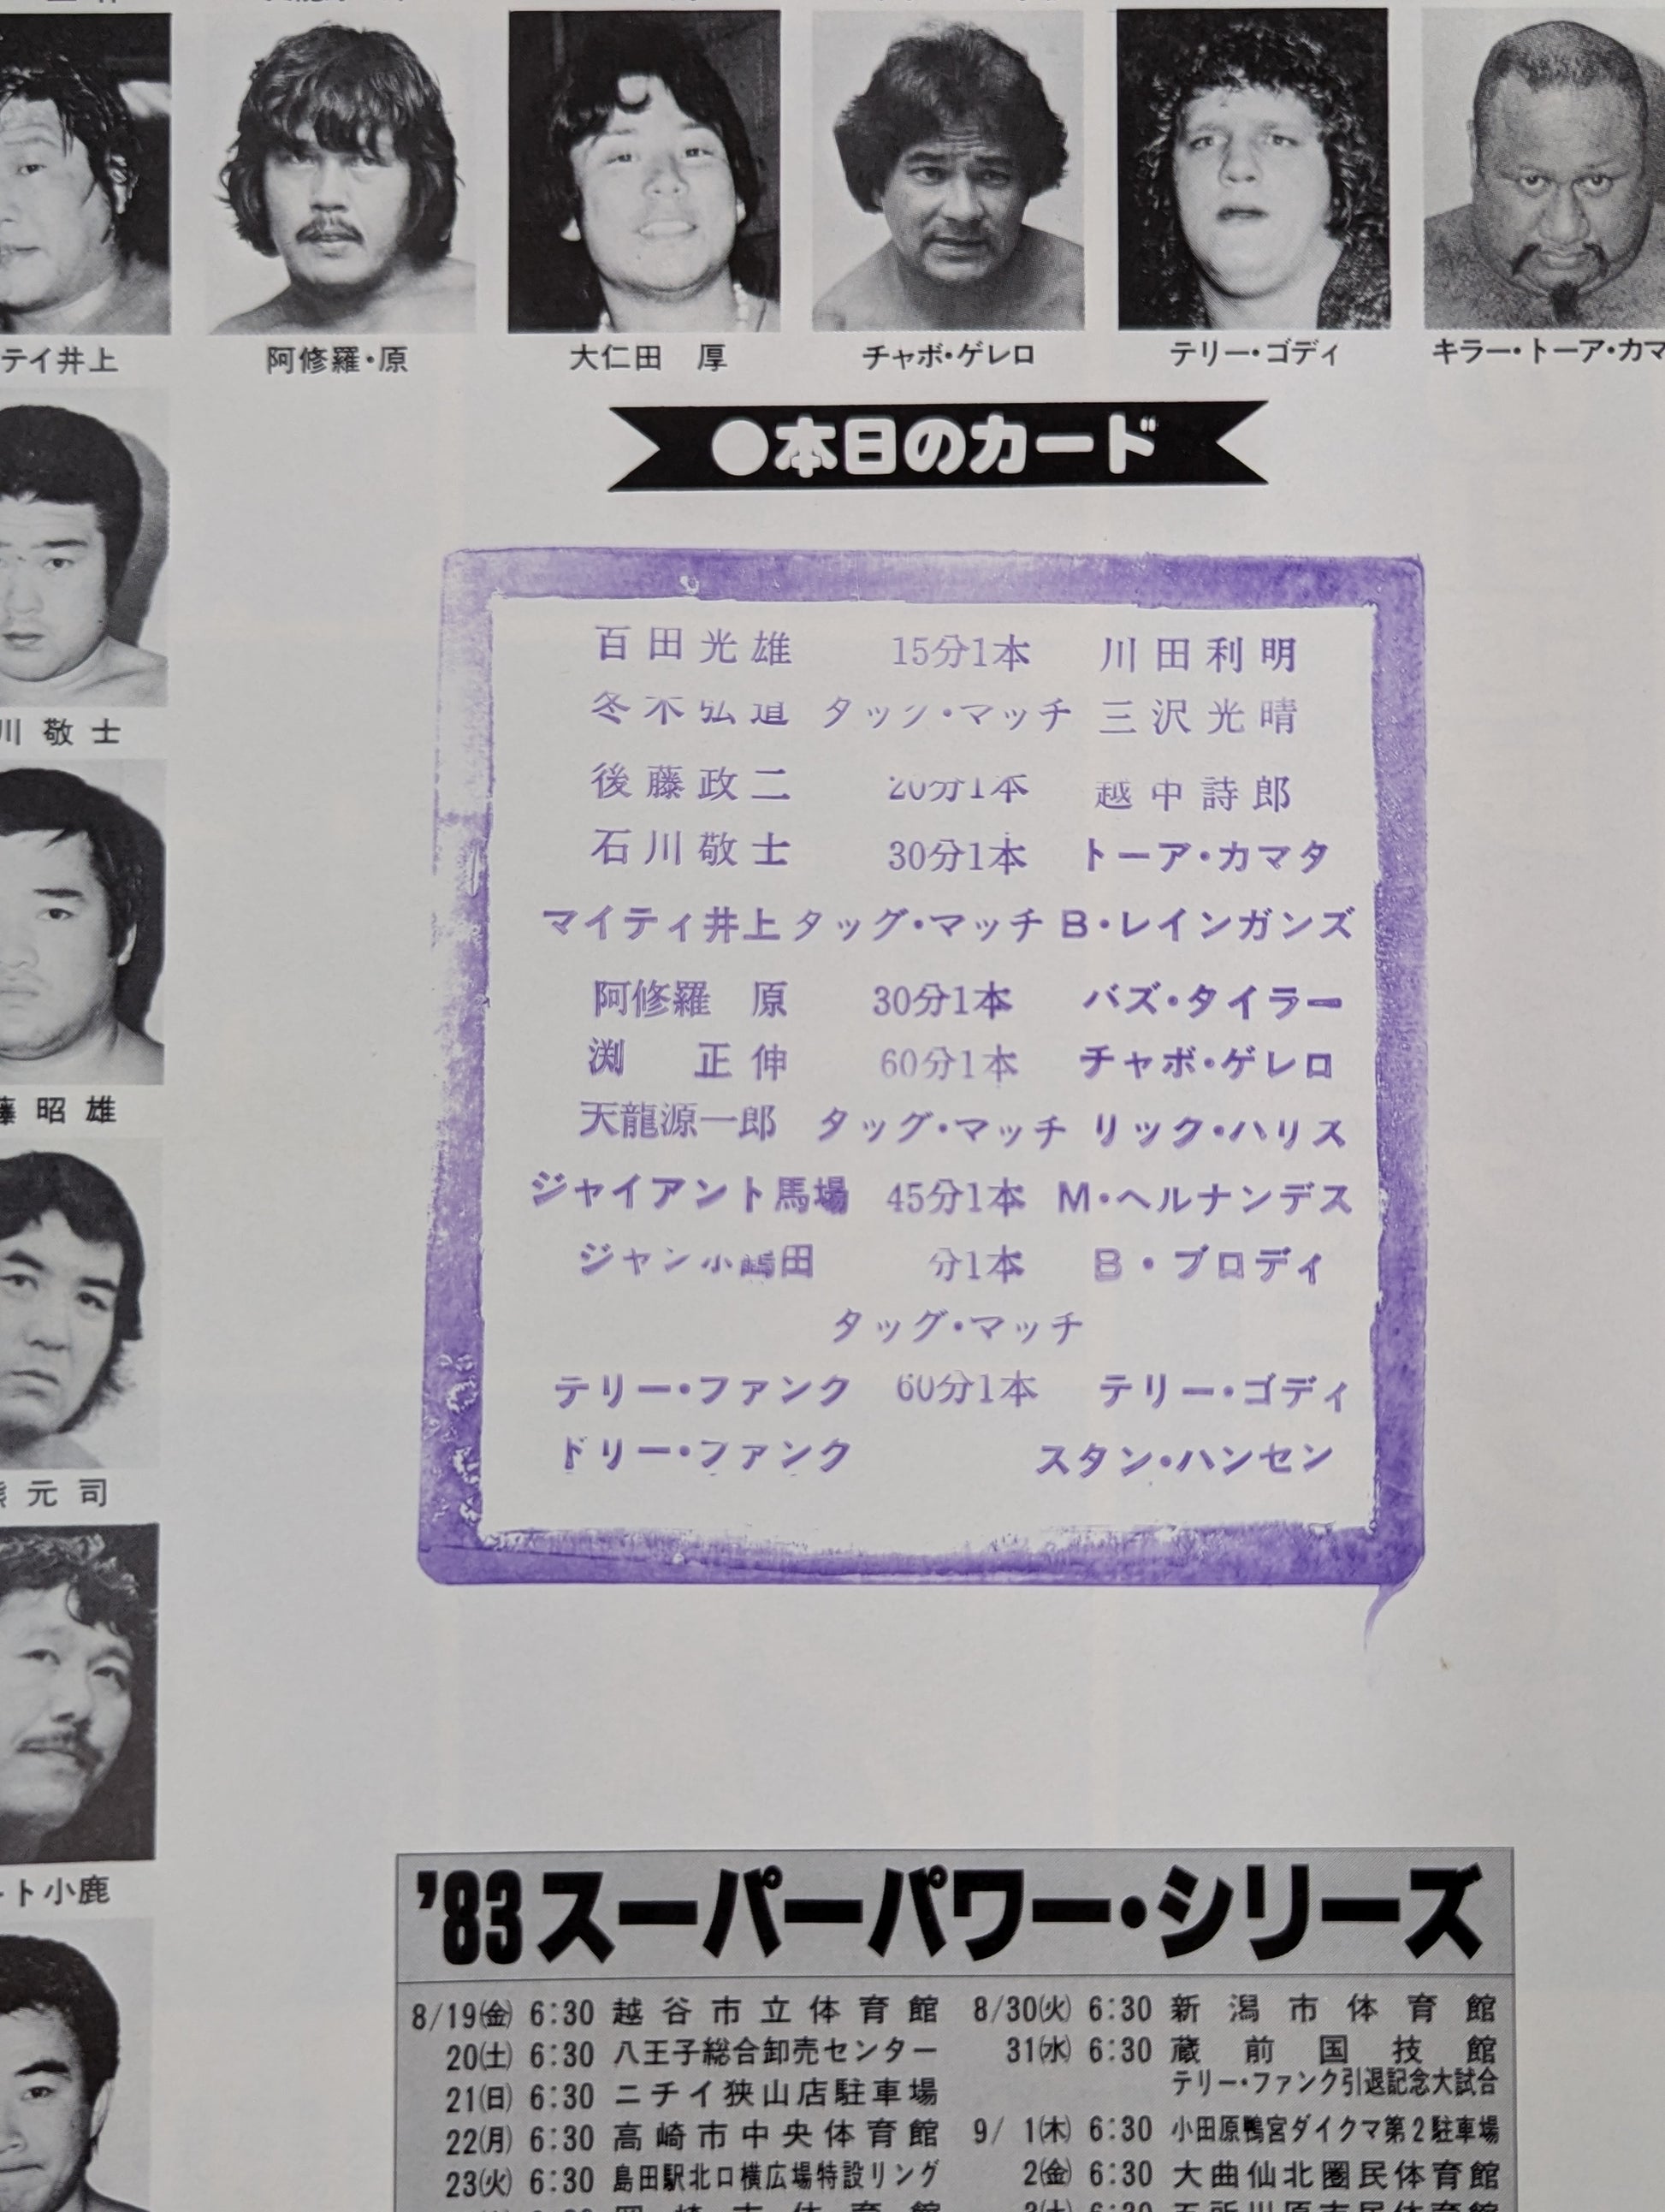 テイ井上 阿修羅・原 大仁田 厚 チャボ・ゲレロ テリー・ゴディ キラー・トーア・カマ
●本日のカード
川 敬 士
藤 昭 雄
熊 元 司
ト小鹿
百田光雄 15分1本 川田利明
冬木弘道 タッグ・マッチ 三沢光晴
後藤政二 20分1本 越中詩郎
石川敬士 30分1本 トーア・カマタ
マイティ井上 タッグ・マッチ B・レインガンズ
阿修羅 原 30分1本 バズ・タイラー
渕 正伸 60分1本 チャボ・ゲレロ
天龍源一郎 タッグ・マッチ リック・ハリス
ジャイアント馬場 45分1本 M・ヘルナンデス
ジャンボ鶴田 分1本 B・ブロディ
タッグ・マッチ
テリー・ファンク 60分1本 テリー・ゴディ
ドリー・ファンク スタン・ハンセン
'83スーパーパワー・シリーズ
8/19㈮ 6:30 越谷市立体育館
20㈯ 6:30 八王子総合卸売センター
21㈰ 6:30 ニチイ狭山店駐車場
22㈪ 6:30 高崎市中央体育館
23㈫ 6:30 島田駅北口横広場特設リング
8/30㈫ 6:30 新潟市体育館
31㈬ 6:30 蔵前国技館
テリー・ファンク引退記念大試合
9/ 1㈭ 6:30 小田原鴨宮ダイクマ第2駐車場
2㈮ 6:30 大曲仙北圏民体育館